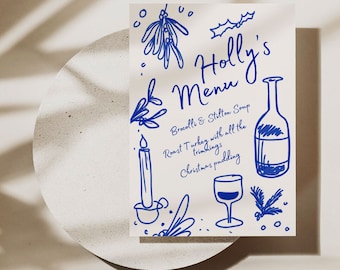 Holly's
Menu
Brocolli & Stilton Soup
Roast Turkey with all the
trimmings
Christmas pudding